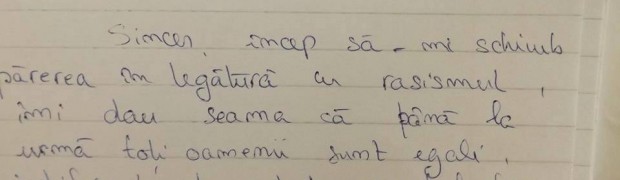 Sincer, încep să-mi schimb
părerea în legătură cu rasismul,
îmi dau seama că până la
urmă toți oamenii sunt egali,